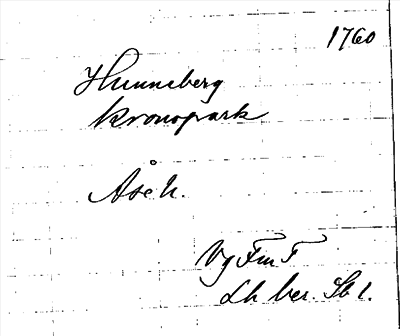 1760
Hunneberg
kronopark
Åse h.
Vg Fm T
Lh ber. Sb 1.